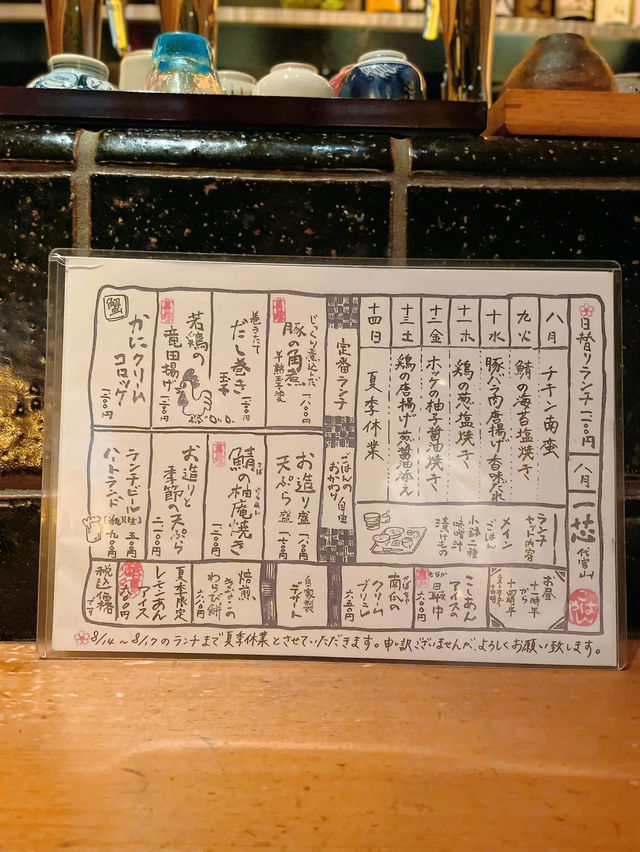 日替りランチ 一二〇〇円
八月
一芯 代官山
ごはん
八月 チキン南蛮
九火 鯖の海苔塩焼き
十水 豚バラ肉唐揚げ
十一木 鶏の葱塩焼き
十二金 ホッケの柚子醤油焼き
十三土 鶏の唐揚げ葱醤油添え
十四日 夏季休業
ランチセット内容
ごはん
メイン
小鉢二種
味噌汁
漬けもの
お昼
十一時半
から
十四時半
定番ランチ
ごはんのおかわり自由
じっくり煮込んだ
豚の角煮
半熟玉子
巻きたて
だし巻き
玉子
若鶏の
竜田揚げ
蟹
かにクリーム
コロッケ
お造り盛
天ぷら盛
鯖の柚庵焼き
お造りと
季節の天ぷら
ランチビール
ハートランド
こしあん
アイスの
最中
六〇〇円
南瓜の
クリーム
プリン
六五〇円
自家製
デザート
焙煎
きなこの
わらび餅
夏季限定
レモンあん
アイス
税込価格
です
8/14〜8/17のランチまで夏季休業とさせていただきます。申し訳ございませんが、よろしくお願い致します。